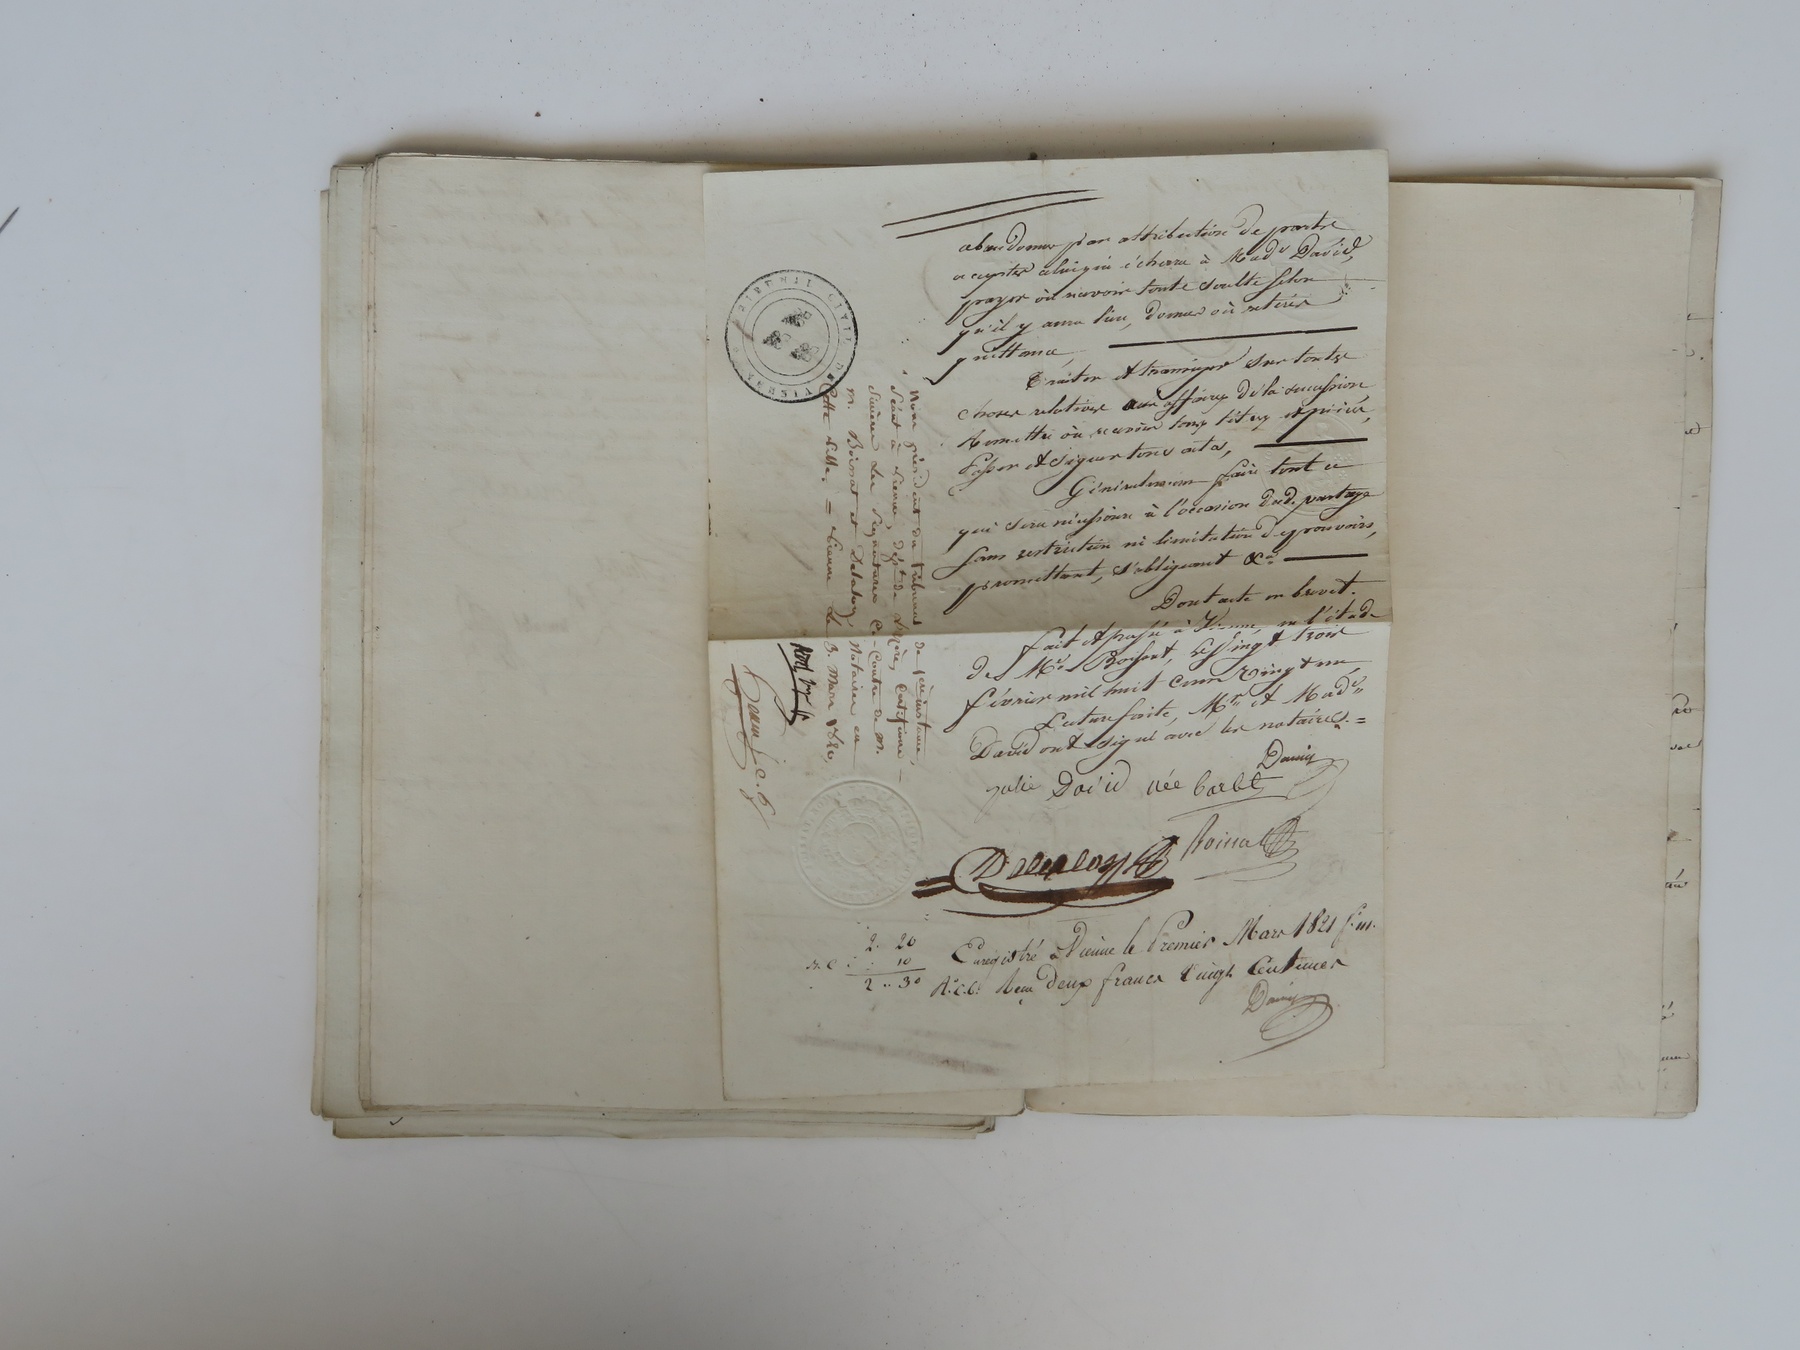 abandonner par attribution de partie
accepter celui qui écherra à Mad.e David,
payer où recevoir toute soulte selon
qu'il y aura lieu, donner où retirer
quittance,
Traiter et transiger sur toutes
choses relatives aux affaires de la succession
Remettre où recevoir tous titres et pièces,
Passer et signer tous actes,
Généralement faire tout ce
qui sera nécessaire à l'occasion dud. partage
sans restriction ni limitation de pouvoirs,
promettant, s'obligeant &a
Dont acte en brevet.
fait et passé à Vienne, en l'étude
de M.e Boissat, le vingt trois
février mil huit cent vingt un
Lecture faite, M.r et Mad.e
David ont signé avec les notaires. =
David
julie David née barbt
Boissat
Delaloy
Enregistré à Vienne le Premier Mars 1821 f.°
R. C. C. Reçu deux francs vingt Centimes
2. 20
10
2 .. 30
Nous président du tribunal de 1ère instance,
séant à Vienne, dép.t de l'isère, certifions
sincères les signatures ci-contre de M.
M. Boissat et Delaloy, Notaires en
cette ville. = Vienne le 3. Mars 1821,
TRIBUNAL CIVIL DE VIENNE